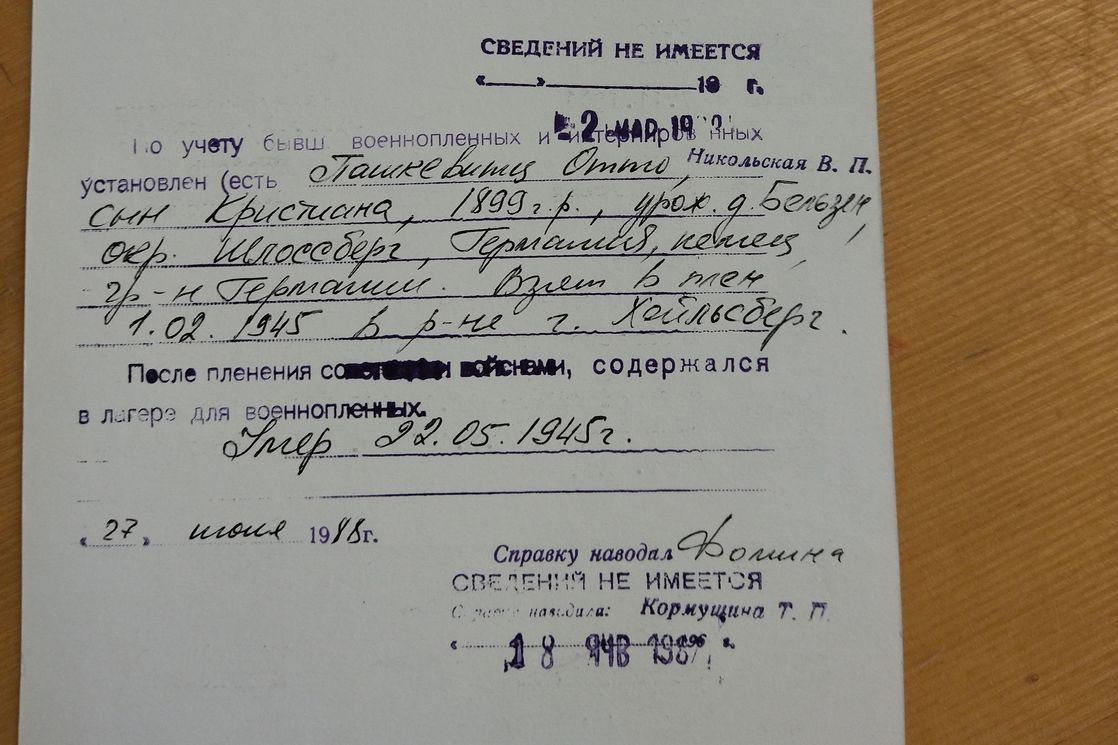 СВЕДЕНИЙ НЕ ИМЕЕТСЯ
«___»____________19 г.
2 МАР 19
По учету бывш. военнопленных и интернированных
Никольская В. П.
установлен (есть Пашкевитц Отто,
сын Кристиана, 1899 г.р., урож. д. Бельзен
окр. Шлоссберг, Германия, немец,
гр-н Германии. Взят в плен
1.02.1945 в р-не г. Хейльсберг.
После пленения советскими войсками, содержался
в лагере для военнопленных.
Умер 22.05.1945г.
«27» июля 1988г.
Справку наводал Фомина
СВЕДЕНИЙ НЕ ИМЕЕТСЯ
Справку наводила: Кормущина Т. П.
18 ЯНВ 1987 г.